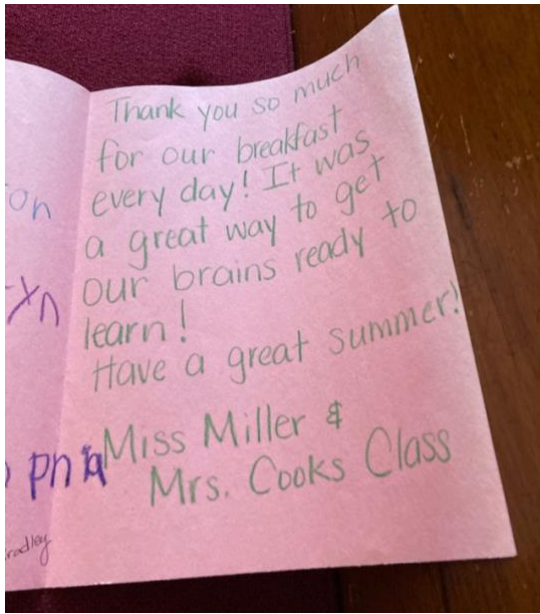 Thank you so much
for our breakfast
every day! It was
a great way to get
our brains ready to
learn!
Have a great summer!
Miss Miller &
Mrs. Cooks Class